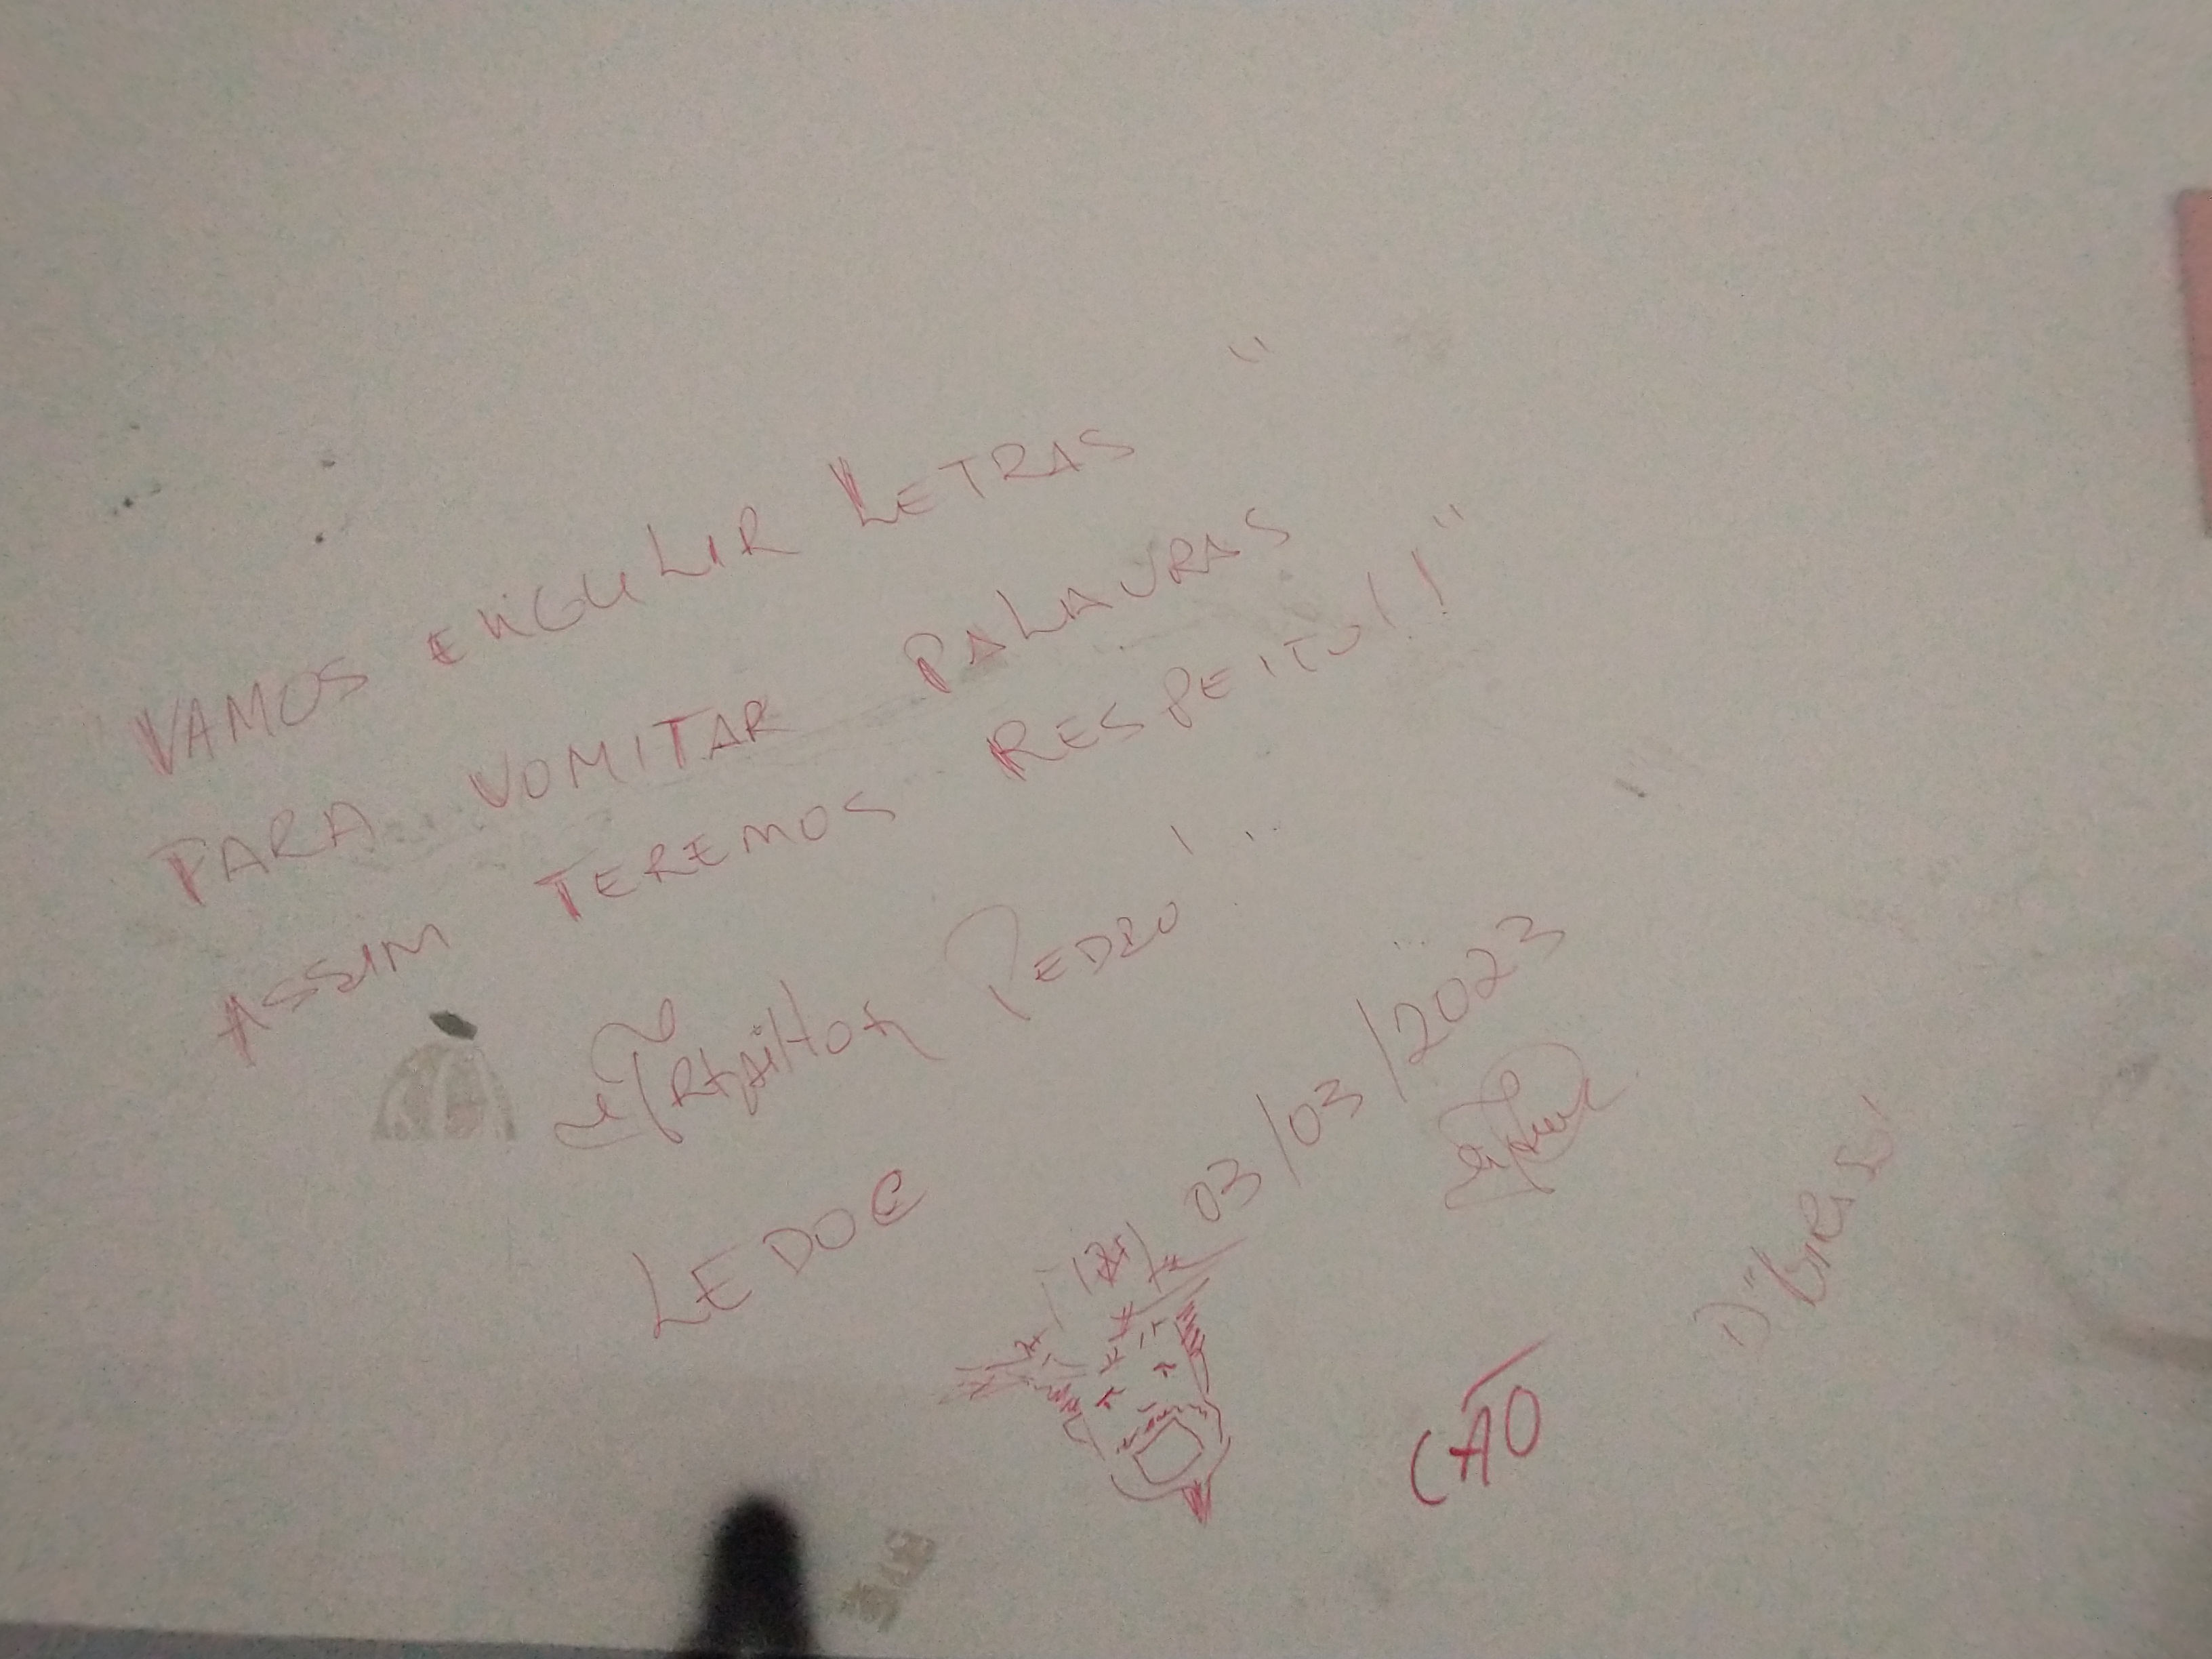 VAMOS ENGULIR LETRAS "
PARA VOMITAR PALAVRAS
ASSIM TEREMOS RESPEITO!!"
PEDRO!
LEDOC 03/03/2023
CÃO